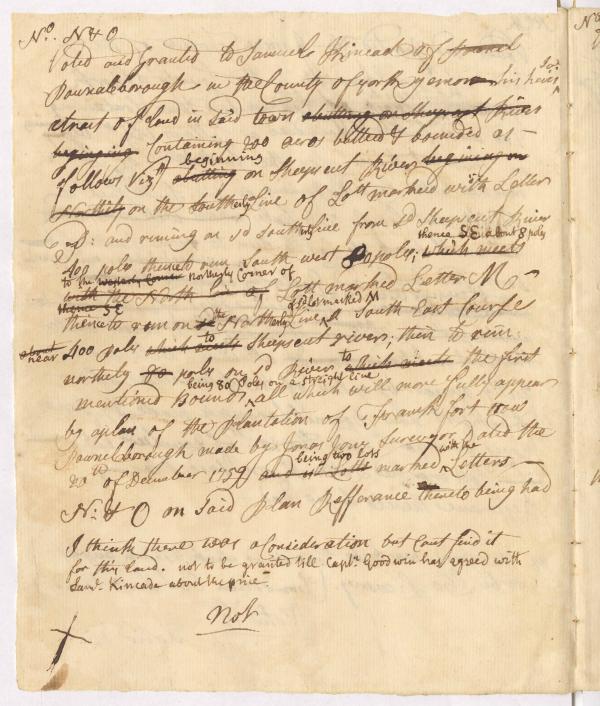 No. N & O
Voted and Granted to Samuel Kincad of
Pownalborough in the County of york yemon his heirs &c
a tract of Land in Said town abutting on Sheepscut River
begining Containing 200 acres butted & bounded as
follows Vizt abutting beginning on Sheepscut River begining on
Northly on the southerly Line of Lott marked with Letter
D: and runing on sd southerly Line from sd Sheepscut River
400 poles thence to run South west 80 poles; which meets thence SE about 8 poles
to the Westerly Corner Northerly Corner of
with the North Line of Lott marked Letter M
thence SE
thence to run on sd Northerly Line of sd Lot marked M a South East Course
about near 400 poles which meets to Sheepscut river; then to run
northerly 80 poles on sd River to which meets the first
being 80 Poles on a streight line
mentioned Bounds, all which will more fully appear
by a plan of the plantation of Frank fort now
Pownelborough made by Jonas Jones Surveyor Dated the
20th of December 1759 and is Lotts being two lots marked with the Letters
N: & O on Said plan Refferance thereto being had
I think there was a Consideration but Cant find it
for this Land. not to be granted till Captn. Goodwin has agreed with
Saml. Kincade about the price
Not